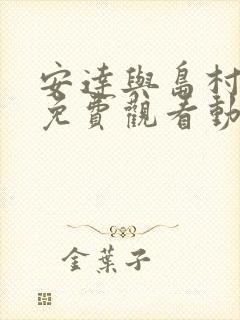 安達與島村
免費觀看動
金葉子